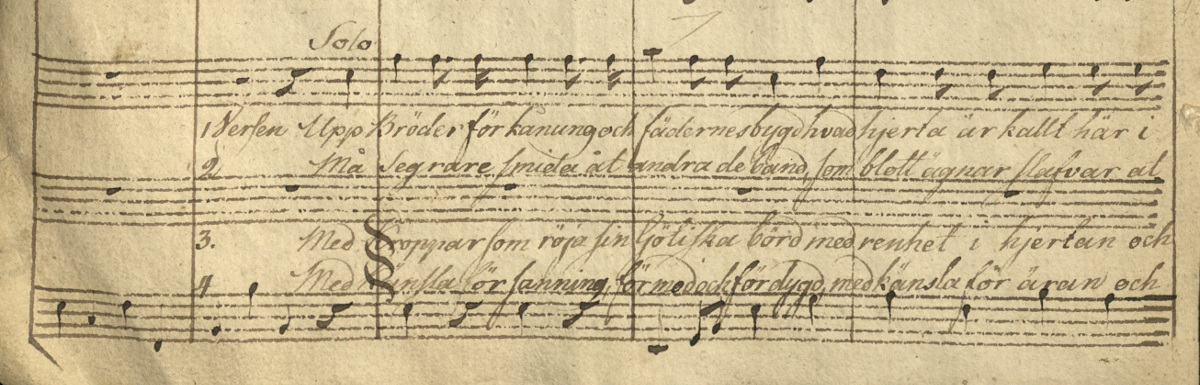 Solo
1 Versen Upp Bröder för konung och fädernesbygd hvad hjerta är kallt här i
2 Må segrare smida åt andra de band, som blott ägnar slafvar at
3. Med kroppar som röja sin Götiska börd med renhet i hjertan och
4 Med känsla för sanning, för med och för dygd, med känsla för äran och